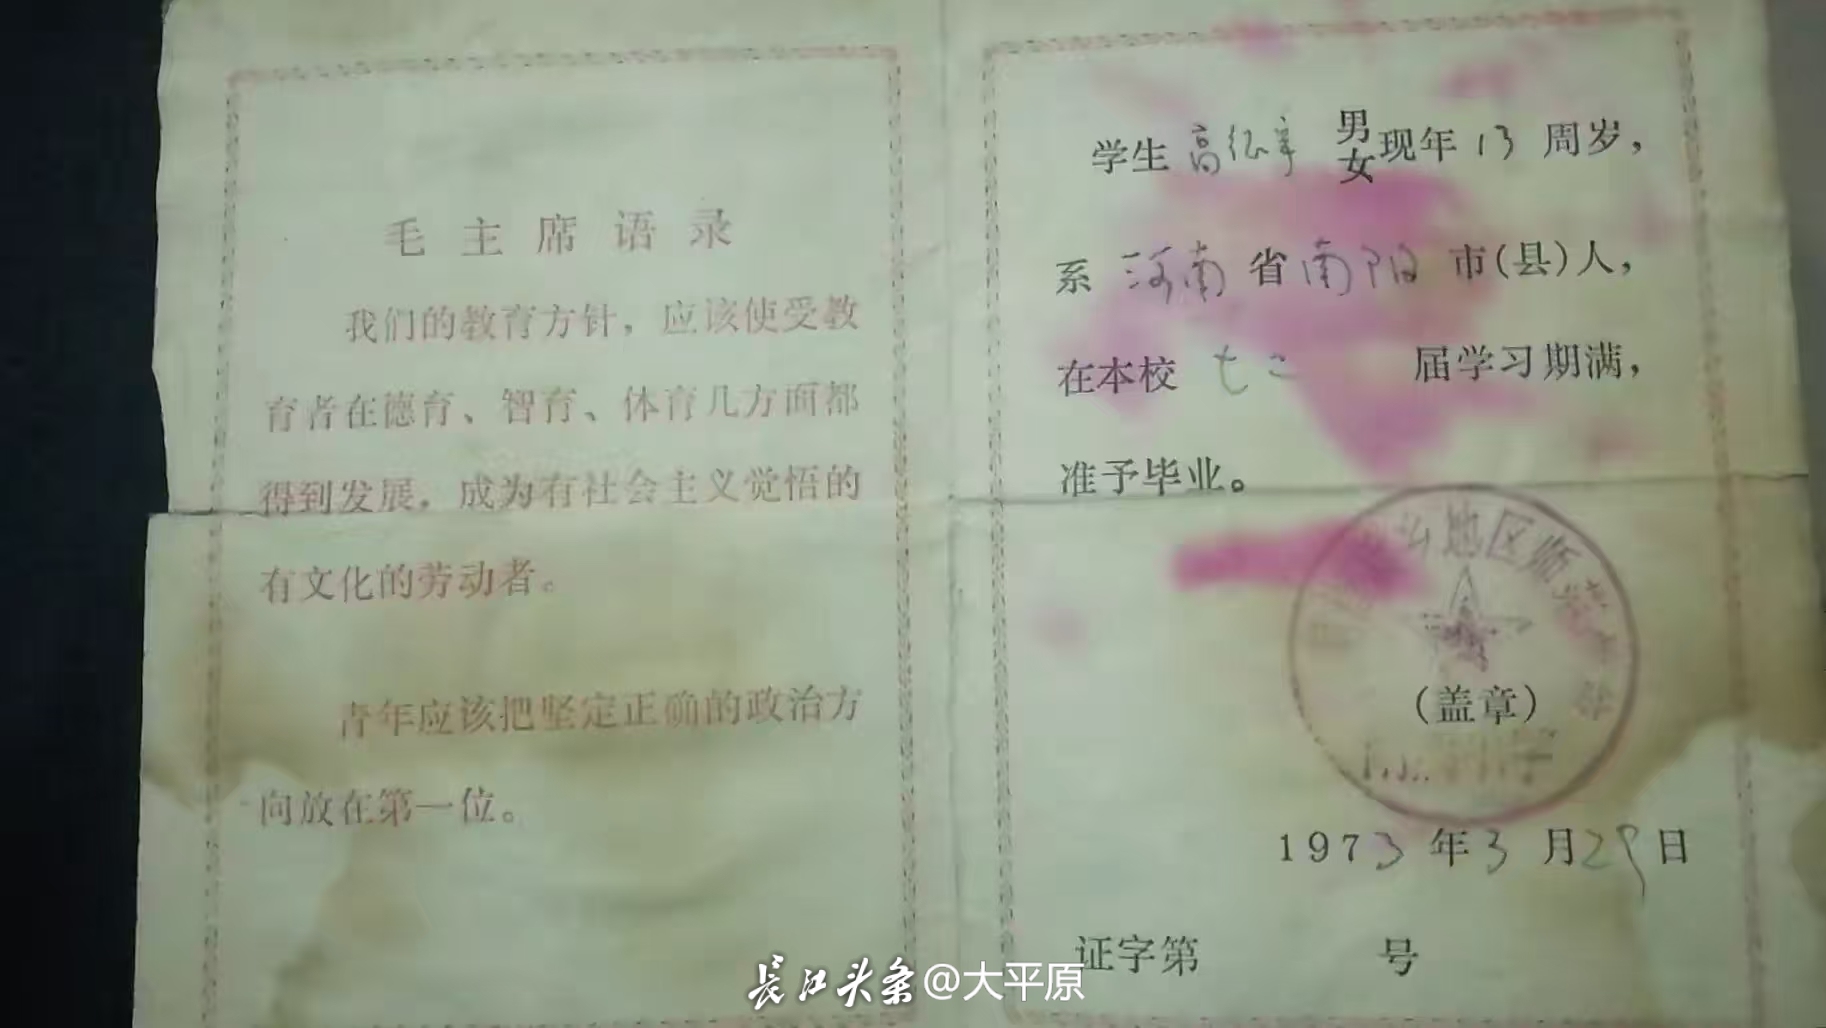 毛主席语录
我们的教育方针，应该使受教
育者在德育、智育、体育几方面都
得到发展，成为有社会主义觉悟的
有文化的劳动者。
青年应该把坚定正确的政治方
向放在第一位。
学生 高 男女现年 13 周岁，
系 河南 省 南阳 市(县)人，
在本校 七二 届学习期满，
准予毕业。
地区师范学校
(盖章)
1973 年 3 月 29 日
证字第 号
长江头条@大平原